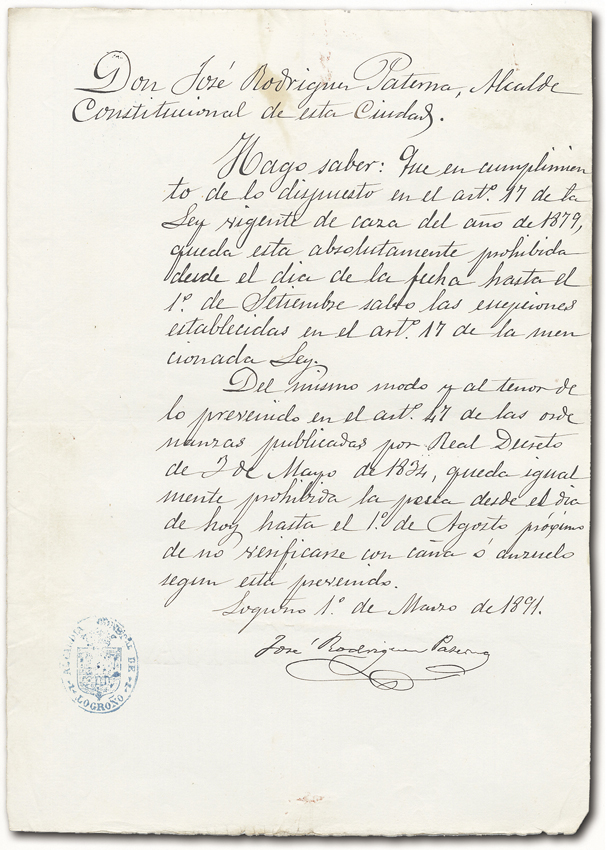 Don José Rodriguez Paterna, Alcalde
Constitucional de esta Ciudad.
Hago saber: Que en cumplimien
to de lo dispuesto en el artº. 17 de la
Ley vigente de caza del año de 1879,
queda esta absolutamente prohibida
desde el dia de la fecha hasta el
1º. de Setiembre salvo las escepciones
establecidas en el artº. 17 de la men
cionada Ley.
Del mismo modo y al tenor de
lo prevenido en el artº. 47 de las orde
nanzas publicadas por Real Decreto
de 3 de Mayo de 1834, queda igual
mente prohibida la pesca desde el dia
de hoy hasta el 1º. de Agosto próximo
de nó verificarse con caña ó anzuelo
segun está prevenido.
Logroño 1º. de Marzo de 1891.
José Rodriguez Paterna
ALCALDIA CONSTNAL DE
LOGROÑO